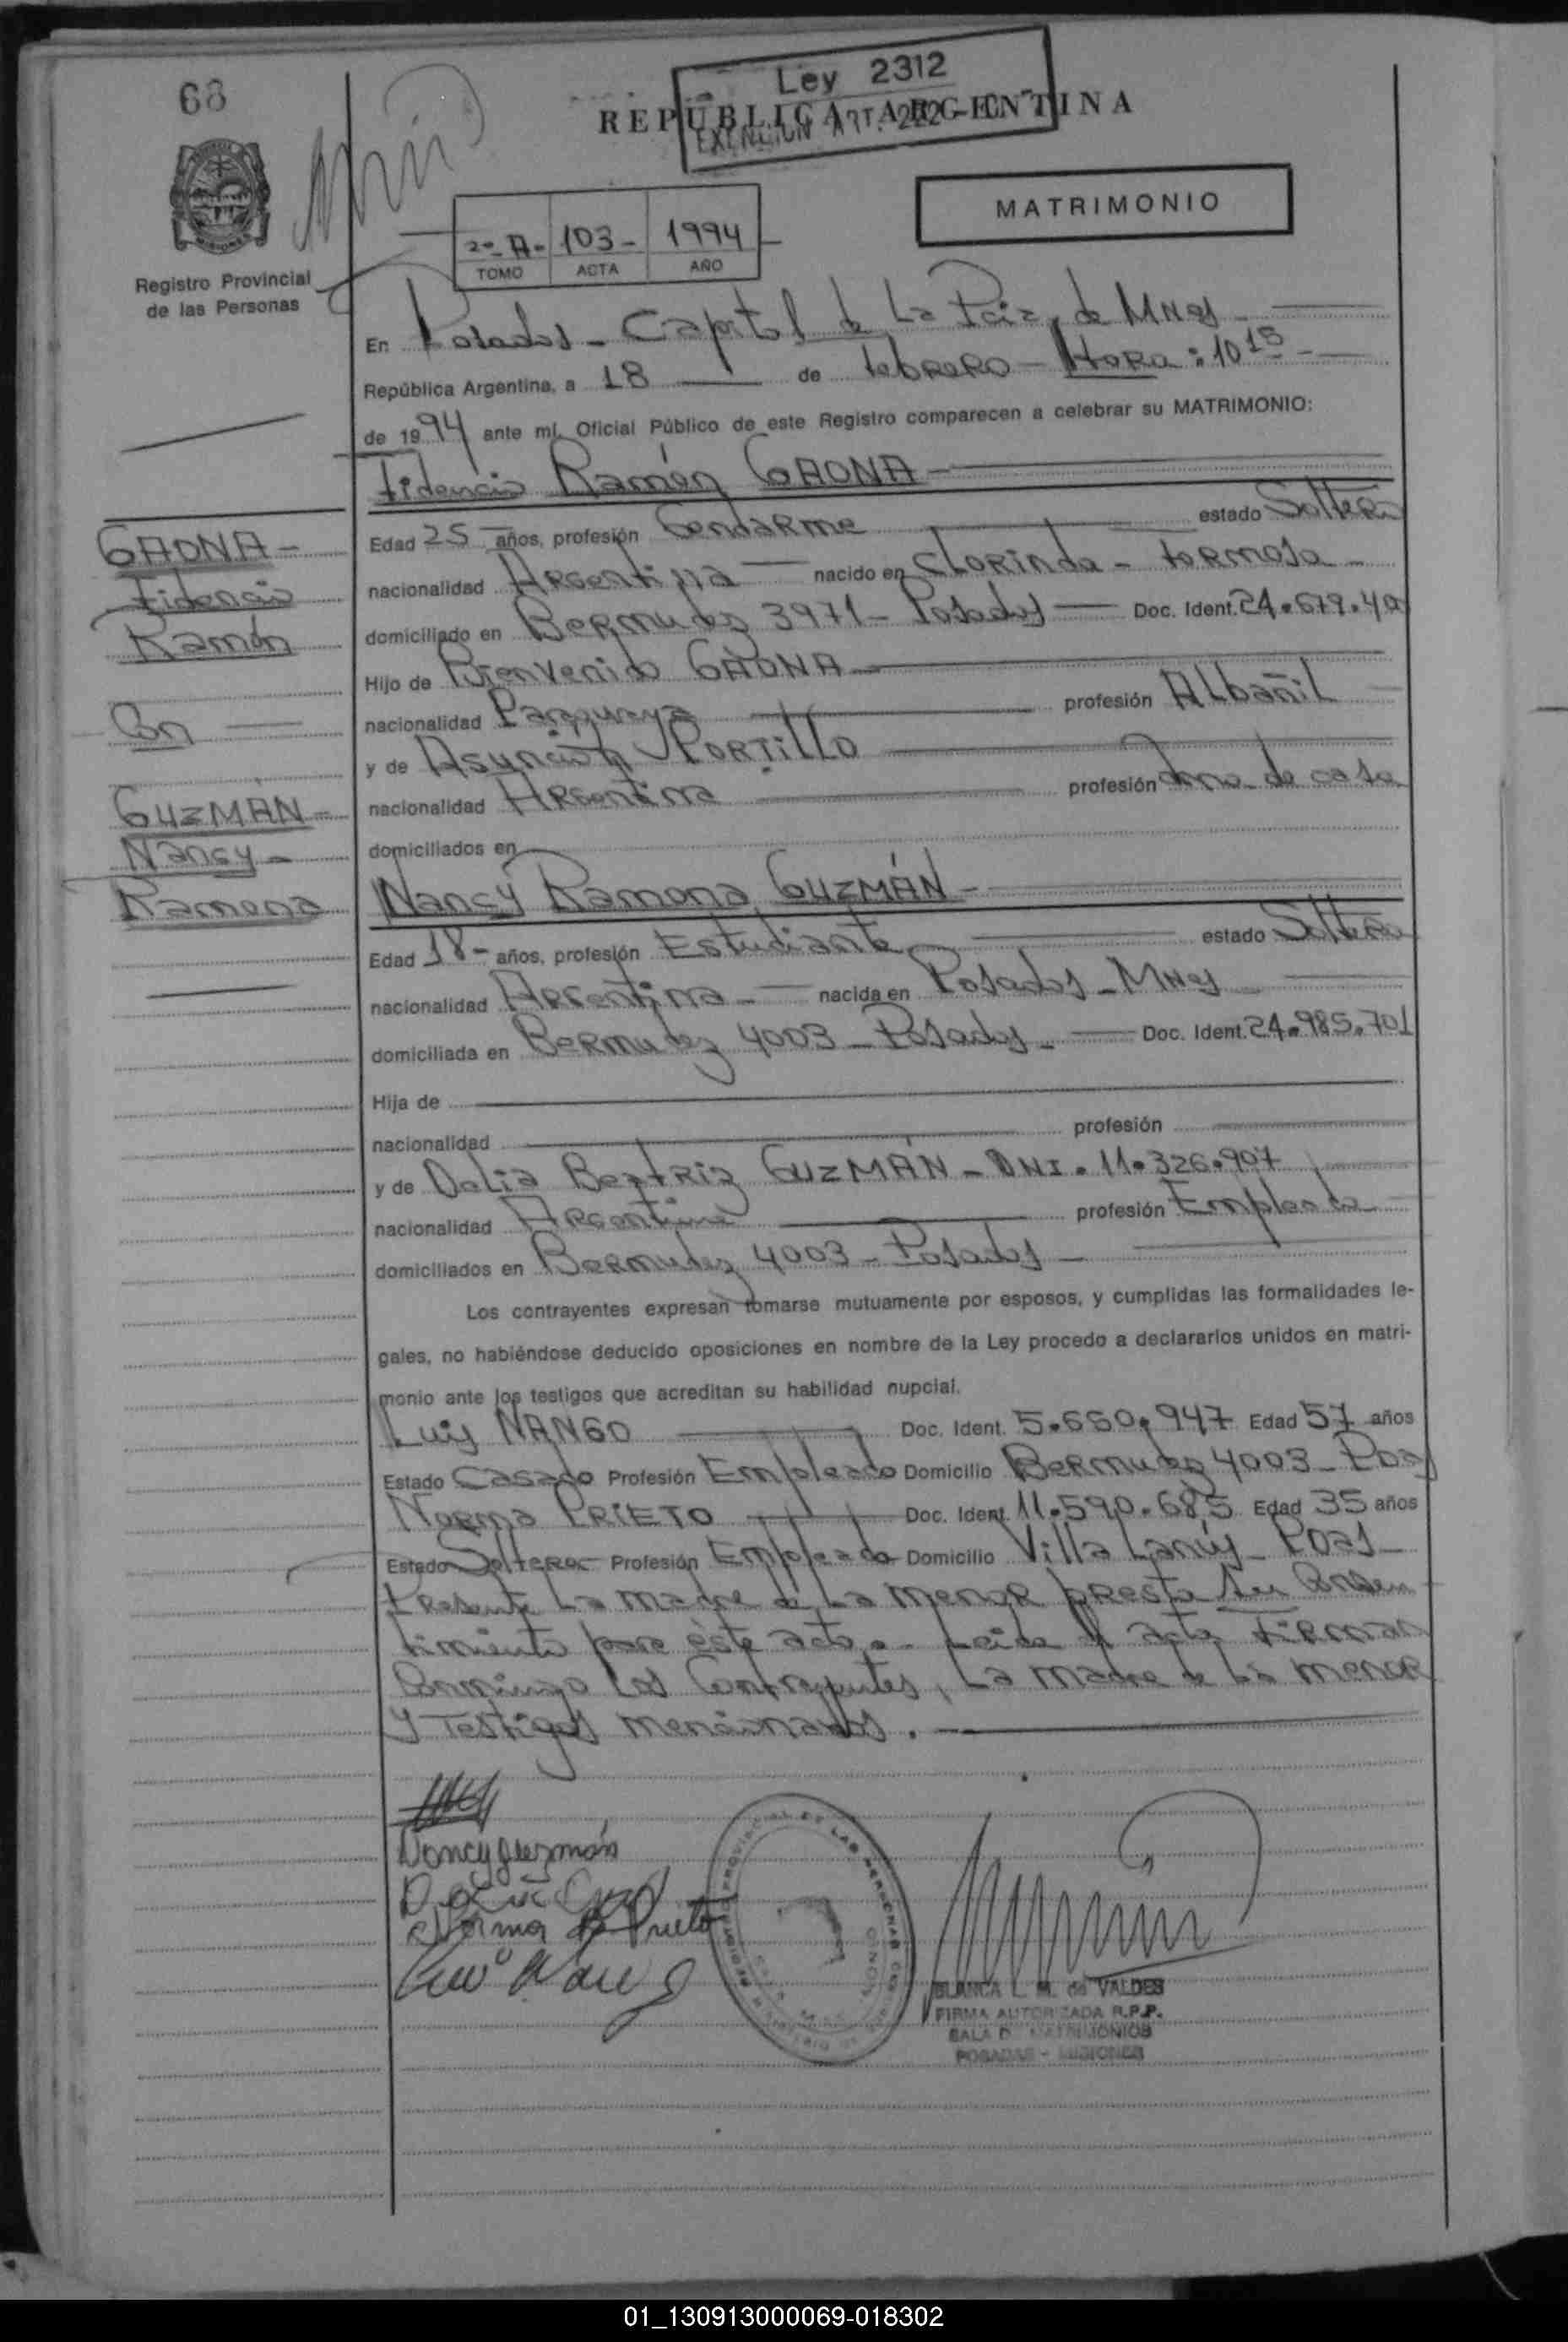 68
Ley 2312
REPUBLICA ARGENTINA
EXENCION ART. 222
MATRIMONIO
2º A- 103- 1994
TOMO ACTA AÑO
Registro Provincial
de las Personas
En Posadas - Capital de La Pcia. de Mnes
República Argentina, a 18 de febrero - Hora: 10 15
de 1994 ante mí, Oficial Público de este Registro comparecen a celebrar su MATRIMONIO:
Fidencio Ramón GAONA
Edad 25 años, profesión Gendarme estado Soltero
nacionalidad Argentina nacido en Clorinda - Formosa
domiciliado en Bermudez 3971 - Posadas Doc. Ident. 21.679.40
Hijo de Bienvenido GAONA
nacionalidad Paraguaya profesión Albañil
y de Asunción PORTILLO
nacionalidad Argentina profesión Ama de casa
domiciliados en
Nancy Ramona GUZMÁN
Edad 18 años, profesión Estudiante estado Soltera
nacionalidad Argentina nacida en Posadas - Mnes
domiciliada en Bermudez 4003 - Posadas Doc. Ident. 24.985.701
Hija de
nacionalidad profesión
y de Delia Beatriz GUZMÁN - DNI. 11.326.907
nacionalidad Argentina profesión Empleada
domiciliados en Bermudez 4003 - Posadas
Los contrayentes expresan tomarse mutuamente por esposos, y cumplidas las formalidades le-
gales, no habiéndose deducido oposiciones en nombre de la Ley procedo a declararlos unidos en matri-
monio ante los testigos que acreditan su habilidad nupcial.
Luis NANGO Doc. Ident. 5.650.947 Edad 57 años
Estado Casado Profesión Empleado Domicilio Bermudez 4003 - Pdas
Norma PRIETO Doc. Ident. 11.590.685 Edad 35 años
Estado Soltera Profesión Empleada Domicilio Villa Lanús - Pdas
Presente La madre de La menor presta su Consen
timiento para este acto. Leida el acta Firman
Conmigo Los Contrayentes, La madre de La menor
y Testigos mencionados.
GAONA -
Fidencio
Ramón
Con
GUZMÁN -
Nancy -
Ramona
Nancy guzmán
Norma Prieto
BLANCA L. M. de VALDES
FIRMA AUTORIZADA R.P.P.
SALA DE MATRIMONIOS
POSADAS - MISIONES
01_130913000069-018302